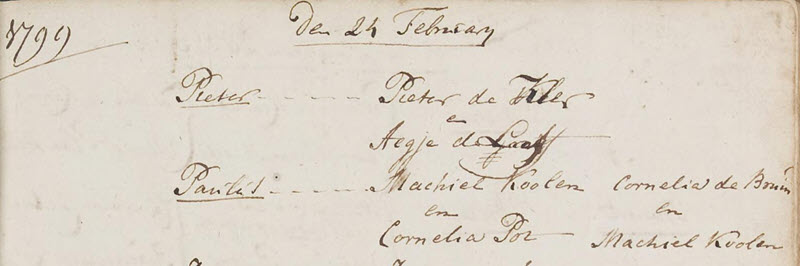 1799
Den 24 February
Pieter - - - - - Pieter de Kler
en
Aegje de Graaff
Paulus - - - - - Machiel Koolen Cornelia de Bruin
en en
Cornelia Pot Machiel Koolen